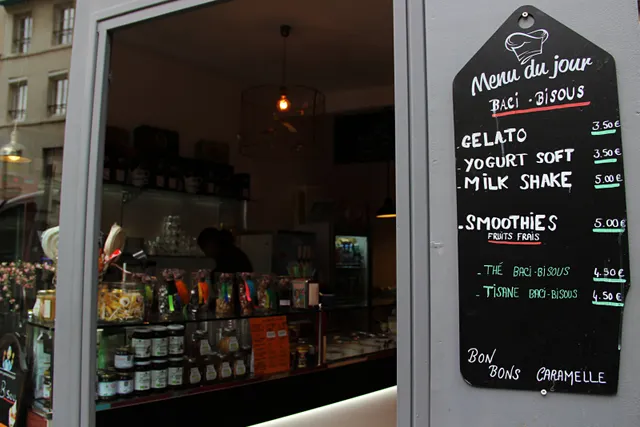 Menu du jour
BACI - BISOUS
- GELATO 3.50€
- YOGURT SOFT 3.50€
- MILK SHAKE 5.00€
- SMOOTHIES 5.00€
FRUITS FRAIS
- THÉ BACI-BISOUS 4.50€
- TISANE BACI-BISOUS 4.50€
BON
BONS CARAMELLE